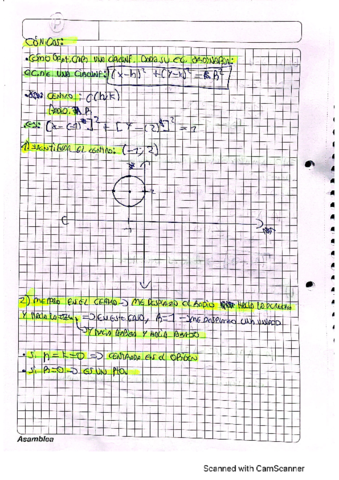 CÓNICAS:
• CÓMO GRAFICAR UNA CIRCUNF. DADA SU EC. ORDINARIA:
EC. DE UNA CIRCUNF: (x-h)² + (y-k)² = R²
CENTRO: C(h,k)
RADIO: R
EJ: [x-(-1)]² + [y-(2)]² = 1
1) IDENTIFICAR EL CENTRO: (-1,2)
2
2) ME PARO EN EL CENTRO → ME DESPLAZO EL RADIO HACIA LA DERECHA
Y HACIA LA IZQ. ⇒ EN ESTE CASO, R=1 → ME DESPLAZO UNA UNIDAD
Y HACIA ARRIBA Y HACIA ABAJO
• Si h=k=0 ⇒ CENTRADA EN EL ORIGEN
• Si R=0 ⇒ ES UN PTO.
Asamblea
Scanned with CamScanner